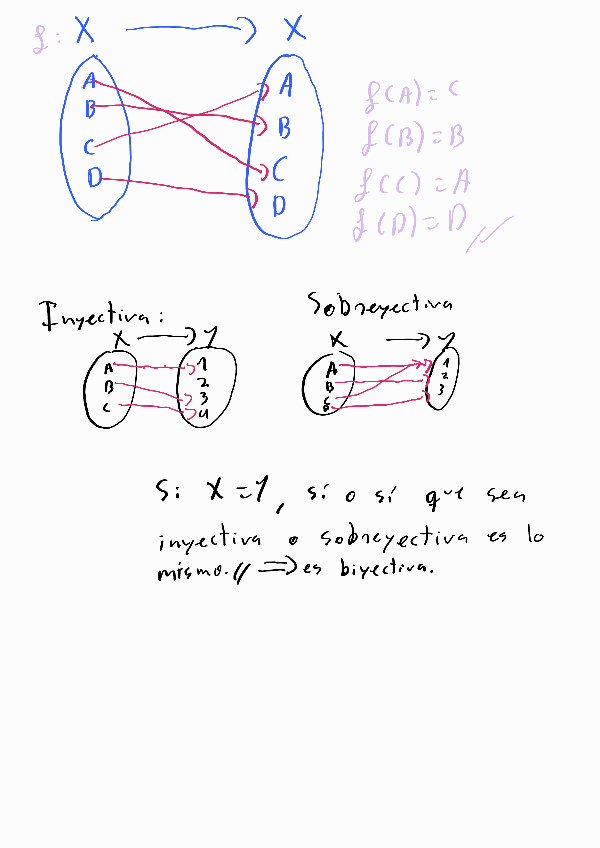 f: X → X
A A
B B
C C
D D
f(A)=C
f(B)=B
f(C)=A
f(D)=D //
Inyectiva:
X → Y
A 1
B 2
C 3
4
Sobreyectiva
X → Y
A 1
B 2
C 3
Si X=Y, sí o sí que sea
inyectiva o sobreyectiva es lo
mismo.// ⇒ es biyectiva.